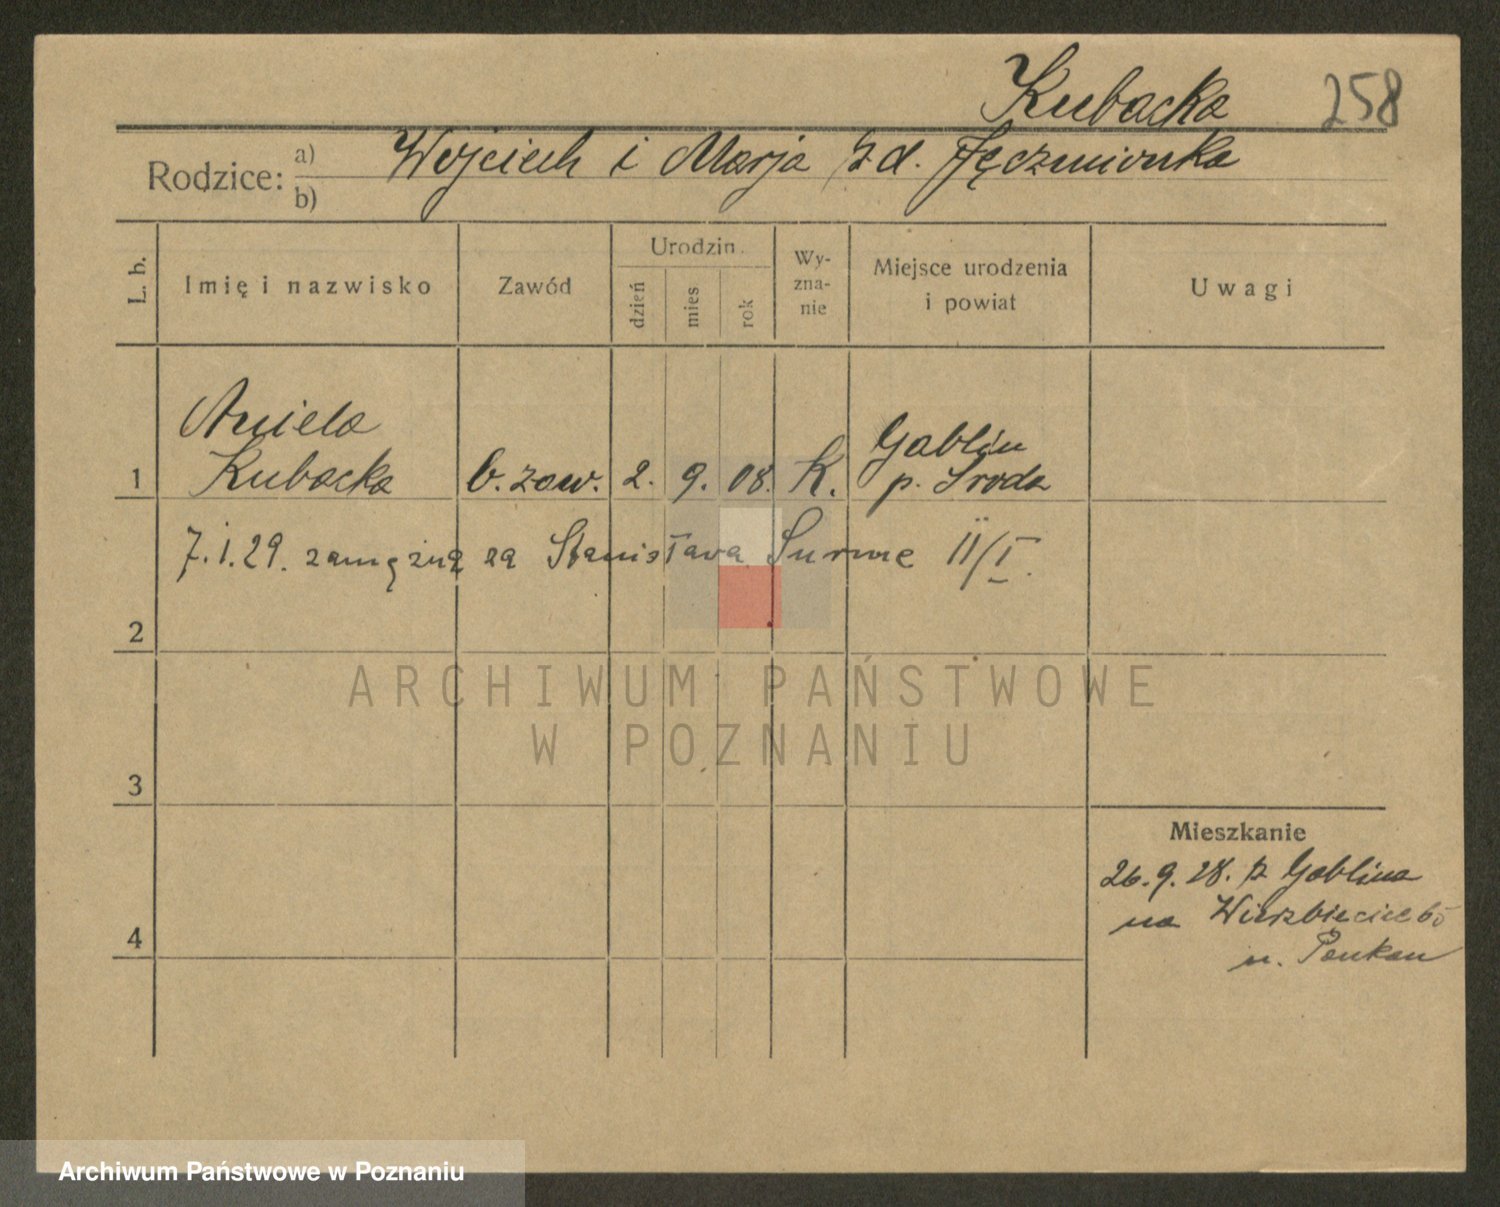 Kubacka 258
Rodzice: a) Wojciech i Marja z d. Jęczmionka
b)
L. b. Imię i nazwisko Zawód Urodzin. dzień mies rok Wy-zna-nie Miejsce urodzenia i powiat Uwagi
Aniela
1 Kubacka b. zaw. 2. 9. 08. K. Gablin p. Środa
7.1.29. zamężną za Stanisława Surme II/I.
2
ARCHIWUM PAŃSTWOWE
W POZNANIU
3
Mieszkanie
26.9.28. z Gablina
na Wierzbięcice
4
u.
Archiwum Państwowe w Poznaniu